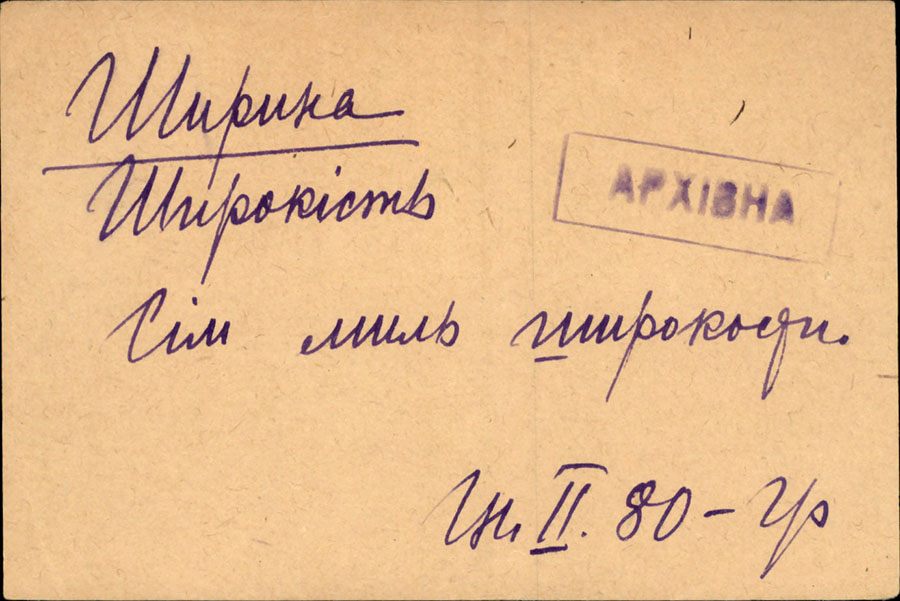 Ширина
Широкість
АРХІВНА
Сім миль широкости.
Гн. II. 80 – Гр